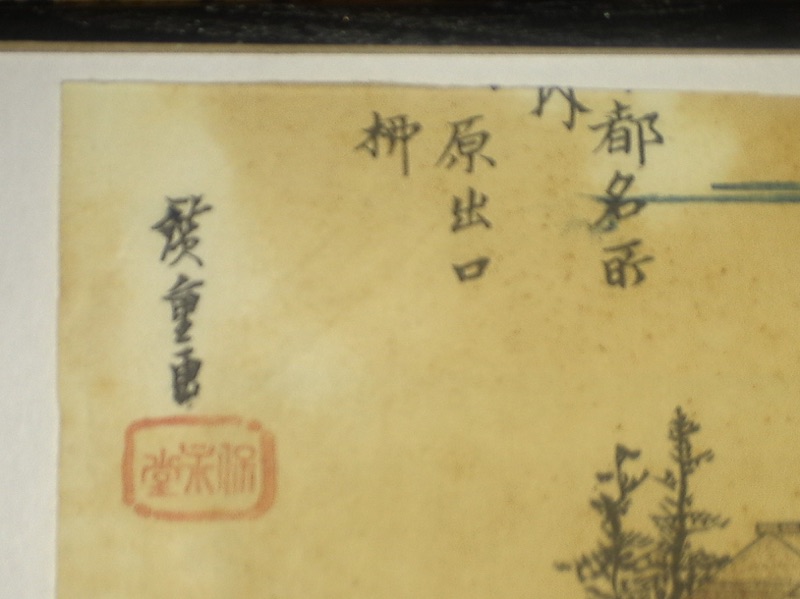 都名所
内
原出口
柳
廣重画
保永堂